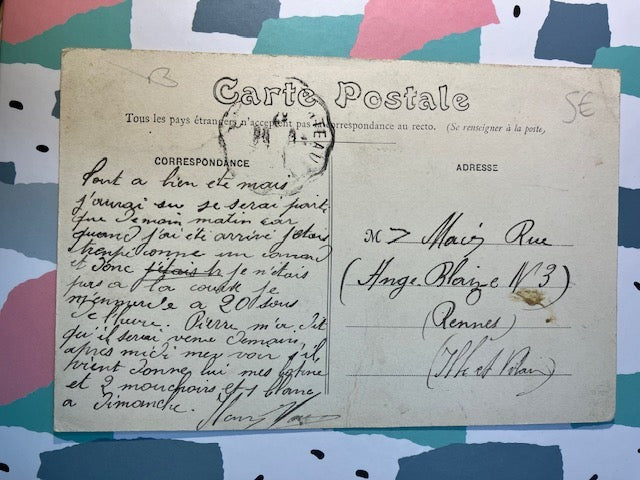 Carte Postale
5€
Tous les pays étrangers n'acceptent pas la correspondance au recto. (Se renseigner à la poste,
EAU
CORRESPONDANCE
Tout a bien été mais
j'aurai su se serai parti
que demain matin car
quand j'ai été arrivé j'étais
trempé comme un canard
et donc j'étais je n'étais
pas a la course je
a 20 sous
de l'heure. Pierre m'a dit
qu'il serai venu demain
après midi me voir s'il
vient donne lui mes
et 2 mouchoirs et 1 blanc
a Dimanche.
ADRESSE
Macé Rue
(Ange Blaize N° 3)
(Rennes)
(Ille et Vilaine)